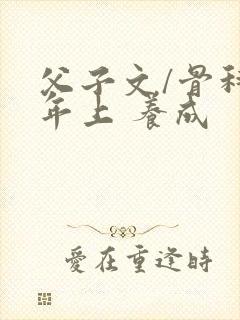 父子文/骨科
年上 養成
愛在重逢時